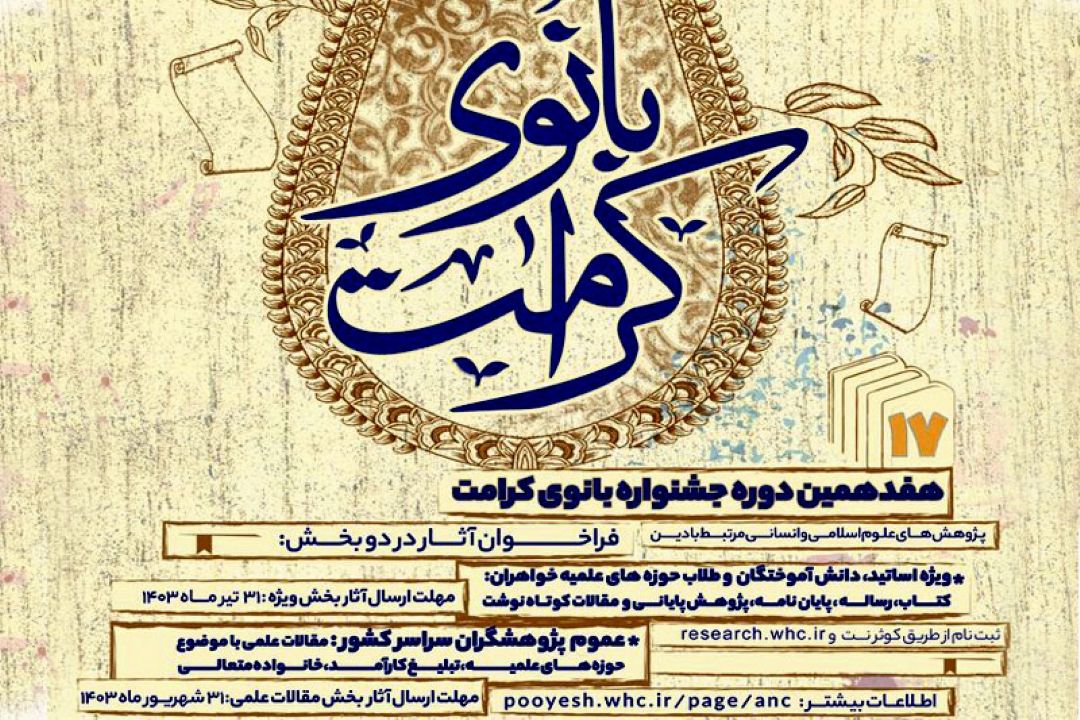 بانوی
کرامت
۱۷
هفدهمین دوره جشنواره بانوی کرامت
پژوهش‌های علوم اسلامی و انسانی مرتبط با دین
فراخوان آثار در دو بخش:
*ویژه اساتید، دانش آموختگان و طلاب حوزه های علمیه خواهران:
کتاب، رساله، پایان نامه، پژوهش پایانی و مقالات کوتاه نوشت
مهلت ارسال آثار بخش ویژه: ۳۱ تیر ماه ۱۴۰۳
ثبت نام از طریق کوثر نت و research.whc.ir
*عموم پژوهشگران سراسر کشور: مقالات علمی با موضوع
حوزه های علمیه، تبلیغ کارآمد، خانواده متعالی
اطلاعات بیشتر: pooyesh.whc.ir/page/anc
مهلت ارسال آثار بخش مقالات علمی: ۳۱ شهریور ماه ۱۴۰۳